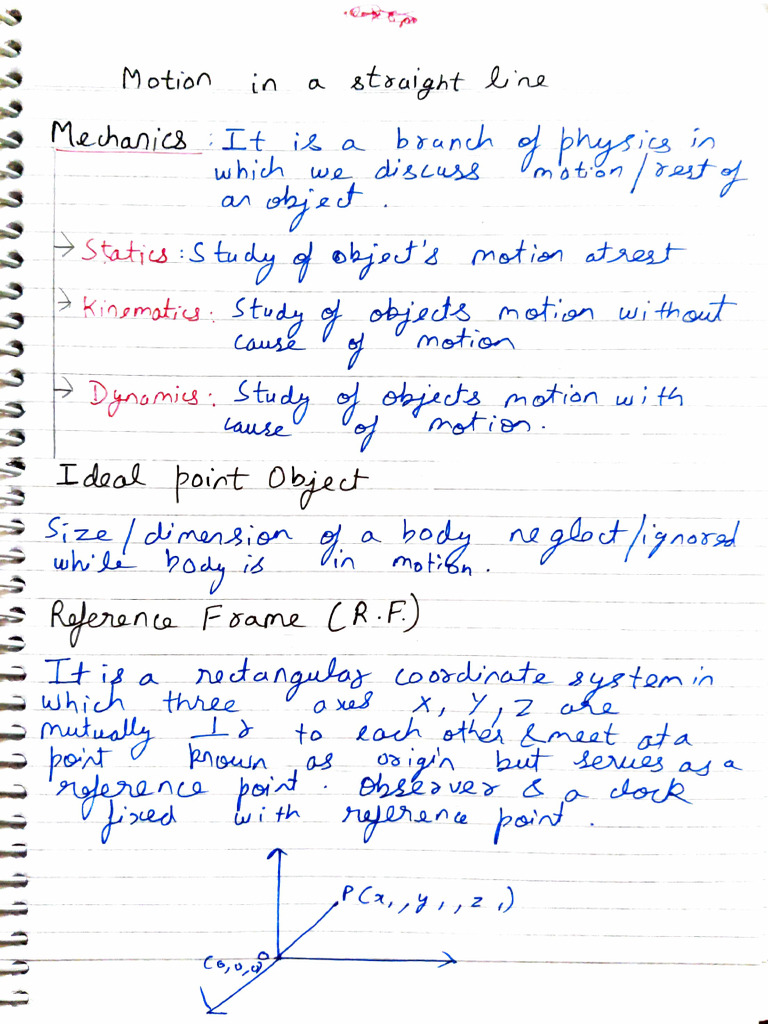 Motion in a straight line
Mechanics : It is a branch of physics in
which we discuss motion/rest of
an object.
→ Statics : Study of object's motion at rest
→ Kinematics : Study of objects motion without
cause of motion
→ Dynamics : Study of objects motion with
cause of motion.
Ideal point Object
Size/dimension of a body neglect/ignored
while body is in motion.
Reference Frame (R.F.)
It is a rectangular coordinate system in
which three axes X, Y, Z are
mutually ⊥r to each other & meet at a
point known as origin but serves as a
reference point. Observer & a clock
fixed with reference point.
P(x₁, y₁, z₁)
(0,0,0) O